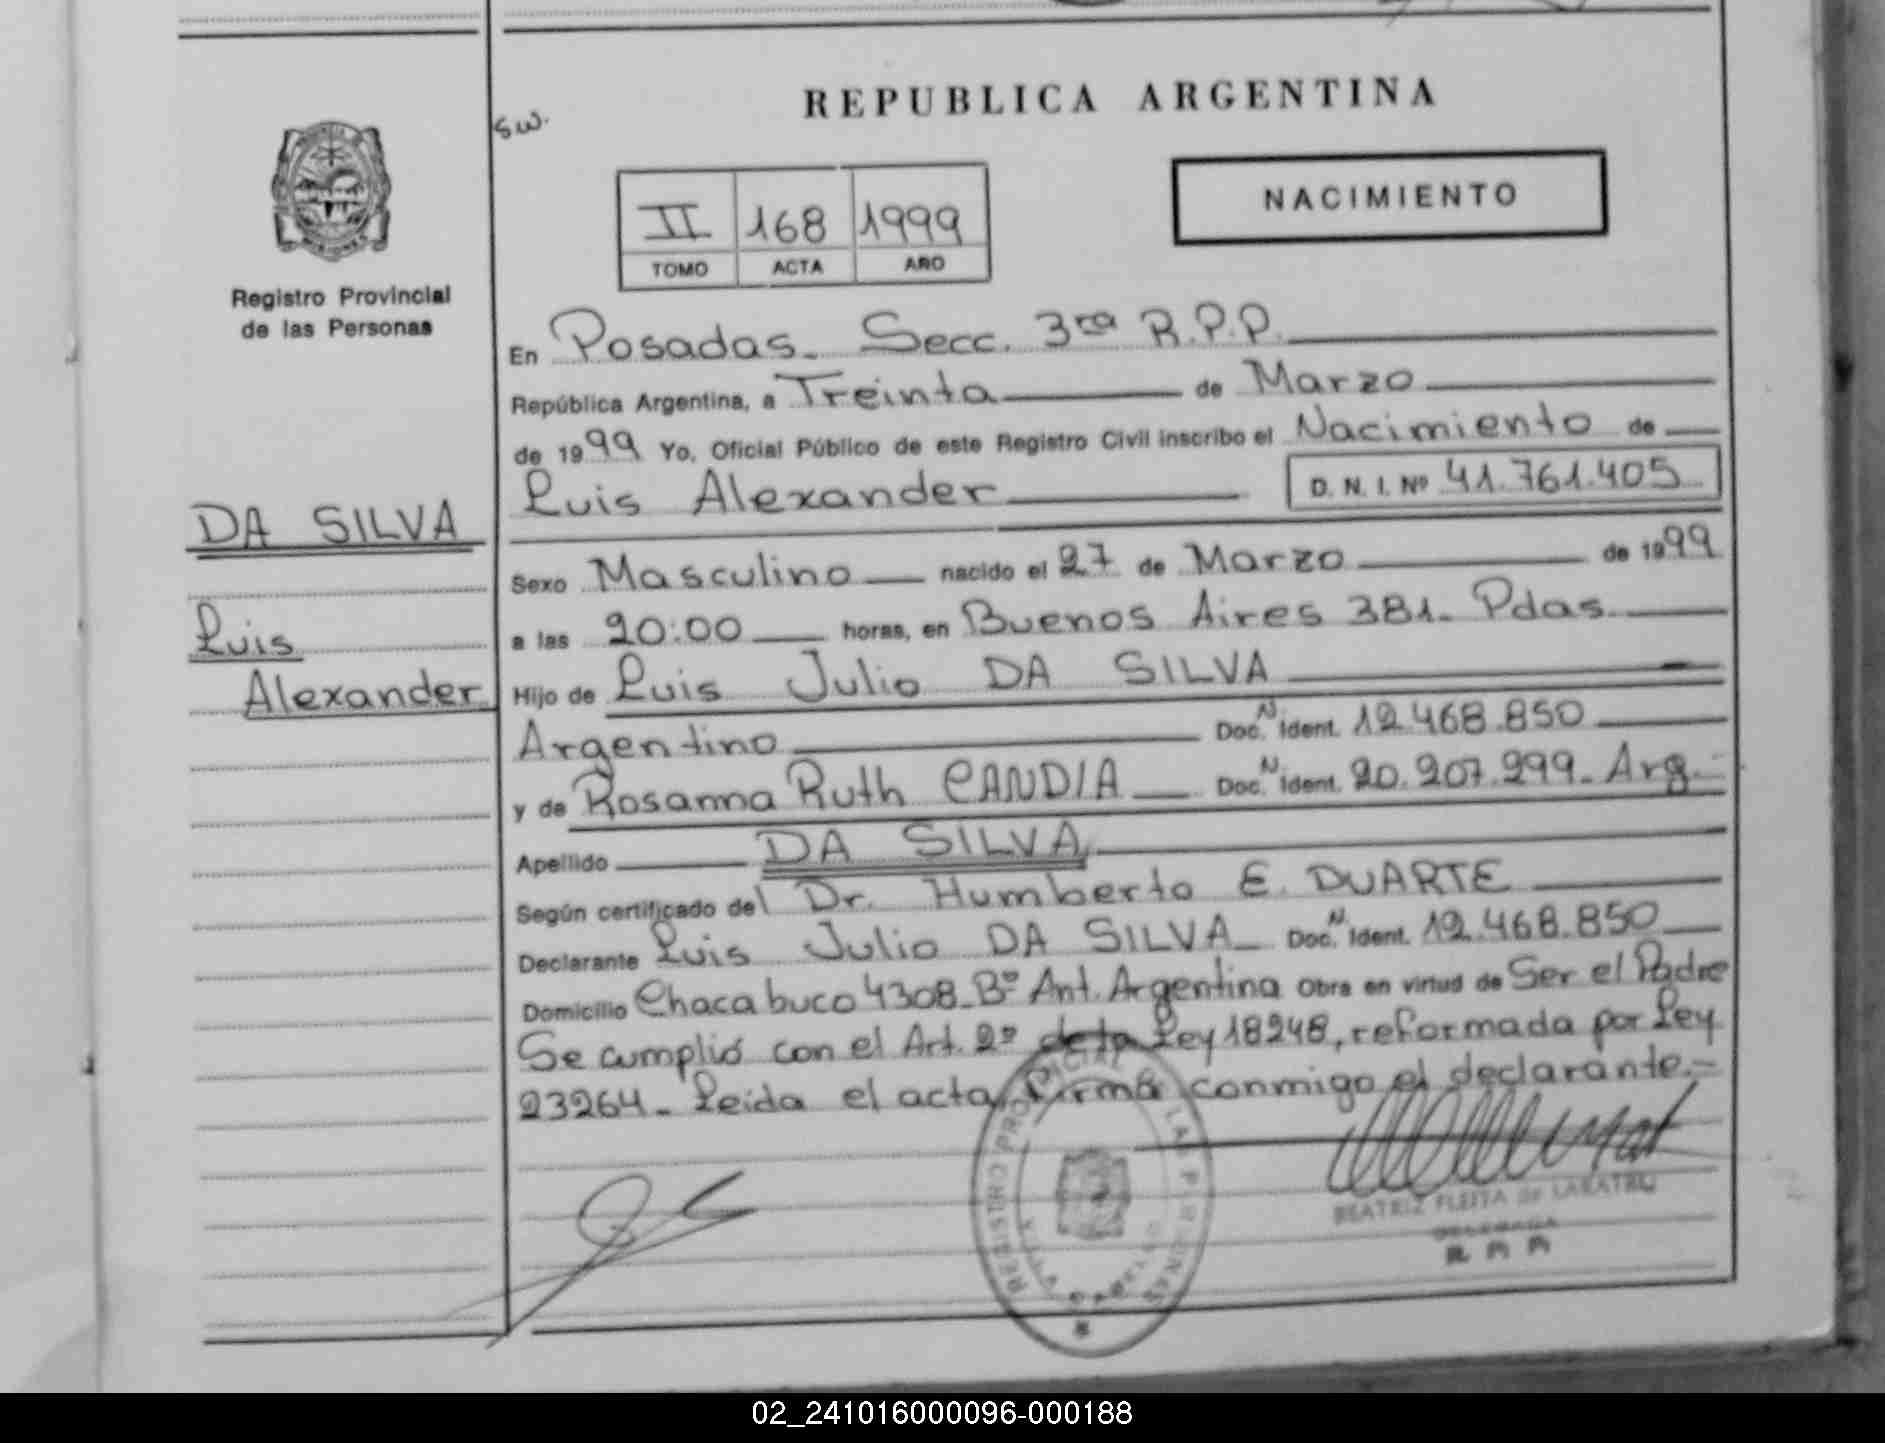 REPUBLICA ARGENTINA
sw.
NACIMIENTO
II 168 1999
TOMO ACTA AÑO
Registro Provincial
de las Personas
DA SILVA
Luis
Alexander
En Posadas. Secc. 3ra R.P.P.
República Argentina, a Treinta de Marzo
de 1999 Yo, Oficial Público de este Registro Civil inscribo el Nacimiento de
Luis Alexander D. N. I. Nº 41.761.405
Sexo Masculino nacido el 27 de Marzo de 1999
a las 20:00 horas, en Buenos Aires 381. Pdas.
Hijo de Luis Julio DA SILVA
Argentino Doc. N. Ident. 12.468.850
y de Rosanna Ruth CANDIA Doc. N. Ident. 20.207.299. Arg.
Apellido DA SILVA
Según certificado del Dr. Humberto E. DUARTE
Declarante Luis Julio DA SILVA Doc. N. Ident. 12.468.850
Domicilio Chacabuco 4308. Bº Ant. Argentina Obra en virtud de Ser el Padre
Se cumplió con el Art. 2º de la Ley 18248, reformada por Ley
23264. Leida el acta, firma conmigo el declarante.-
REGISTRO PROVINCIAL DE LAS PERSONAS
BEATRIZ FLEITA de
02_241016000096-000188